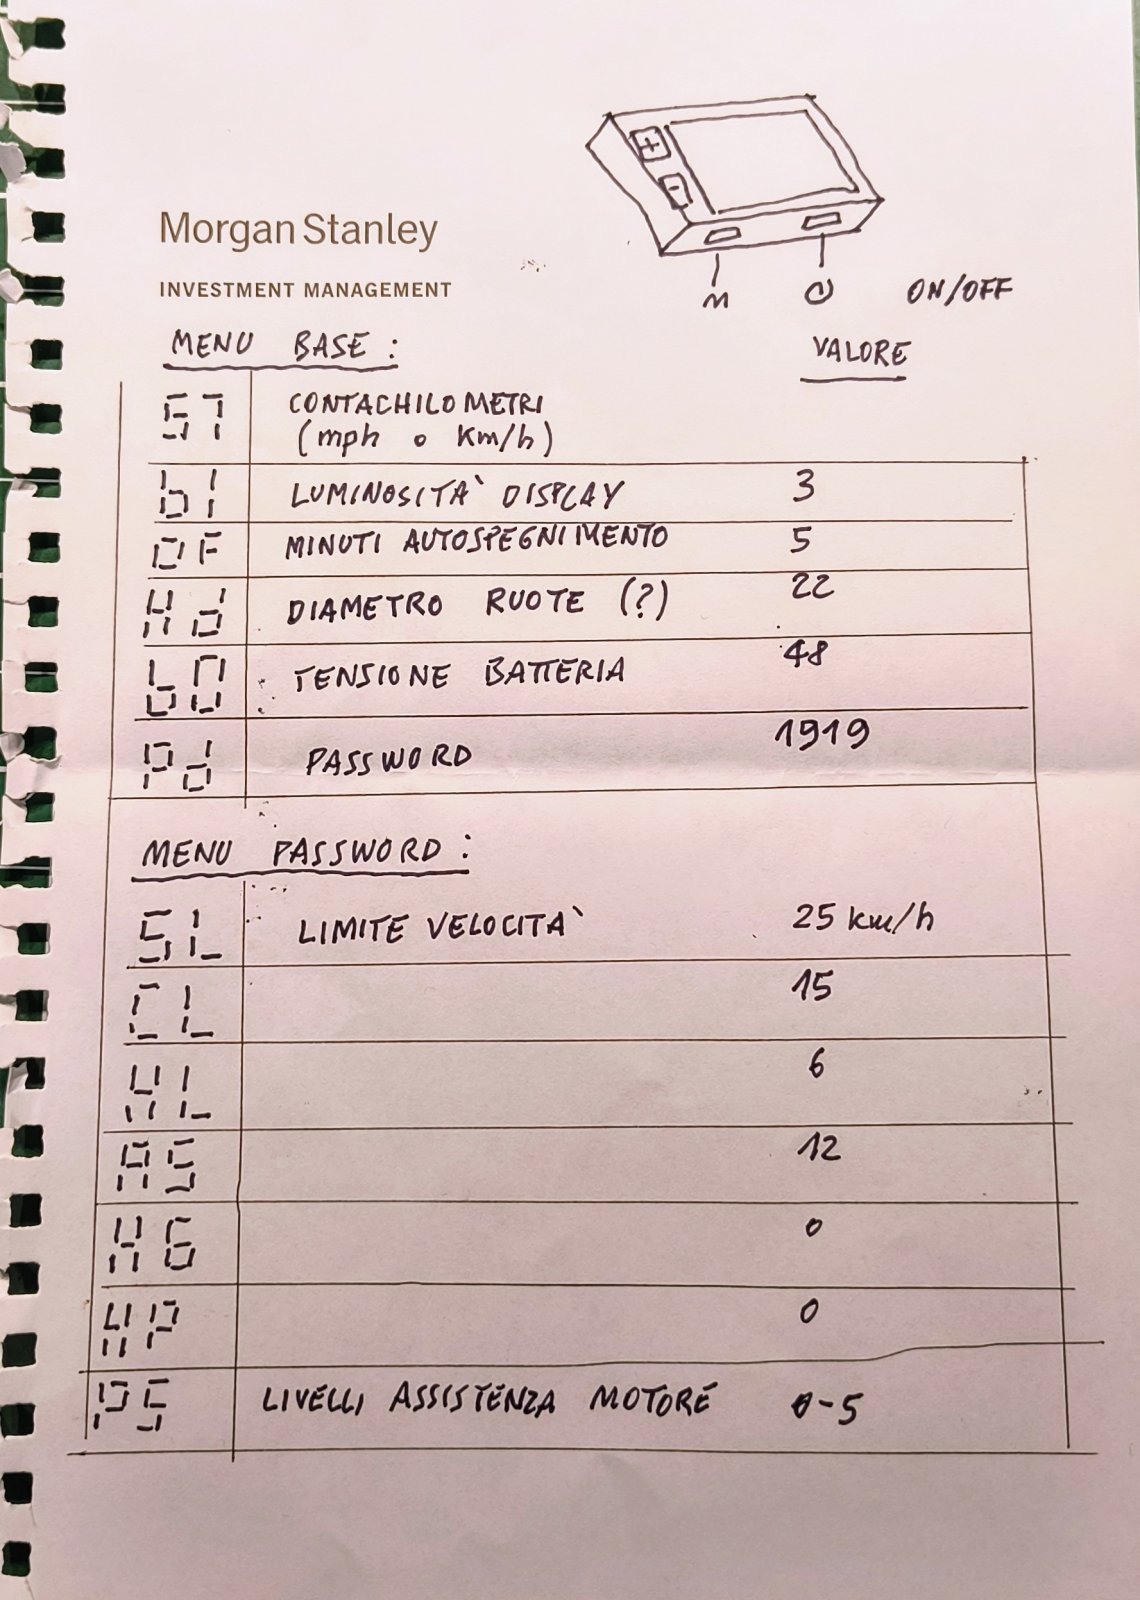 +
-
Morgan Stanley
INVESTMENT MANAGEMENT
M ON/OFF
MENU BASE: VALORE
S7 CONTACHILOMETRI
(mph o Km/h)
bI LUMINOSITA` DISPLAY 3
OF MINUTI AUTOSPEGNIMENTO 5
Hd DIAMETRO RUOTE (?) 22
bO TENSIONE BATTERIA 48
Pd PASSWORD 1919
MENU PASSWORD:
SL LIMITE VELOCITA` 25 km/h
CL 15
HL 6
AS 12
HG 0
HP 0
PS LIVELLI ASSISTENZA MOTORE 0-5